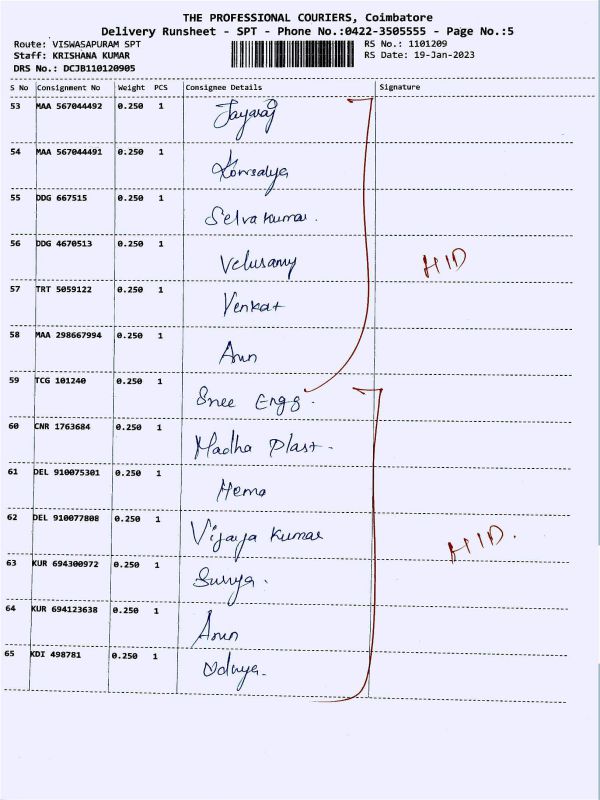 THE PROFESSIONAL COURIERS, Coimbatore
Delivery Runsheet - SPT - Phone No.:0422-3505555 - Page No.:5
Route: VISWASAPURAM SPT
Staff: KRISHANA KUMAR
DRS No.: DCJB110120905
RS No.: 1101209
RS Date: 19-Jan-2023
S No Consignment No Weight PCS Consignee Details Signature
53 MAA 567044492 0.250 1 Jayaraj
54 MAA 567044491 0.250 1 Kowsalya
55 DDG 667515 0.250 1 Selvakumar.
56 DDG 4670513 0.250 1 Velusamy
HID
57 TRT 5059122 0.250 1 Venkat
58 MAA 298667994 0.250 1 Arun
59 TCG 101240 0.250 1 Sree Engg.
60 CNR 1763684 0.250 1 Madha Plast.
61 DEL 910075301 0.250 1 Hema
62 DEL 910077808 0.250 1 Vijaya Kumar
HID.
63 KUR 694300972 0.250 1 Surya.
64 KUR 694123638 0.250 1 Arun
65 KDI 498781 0.250 1